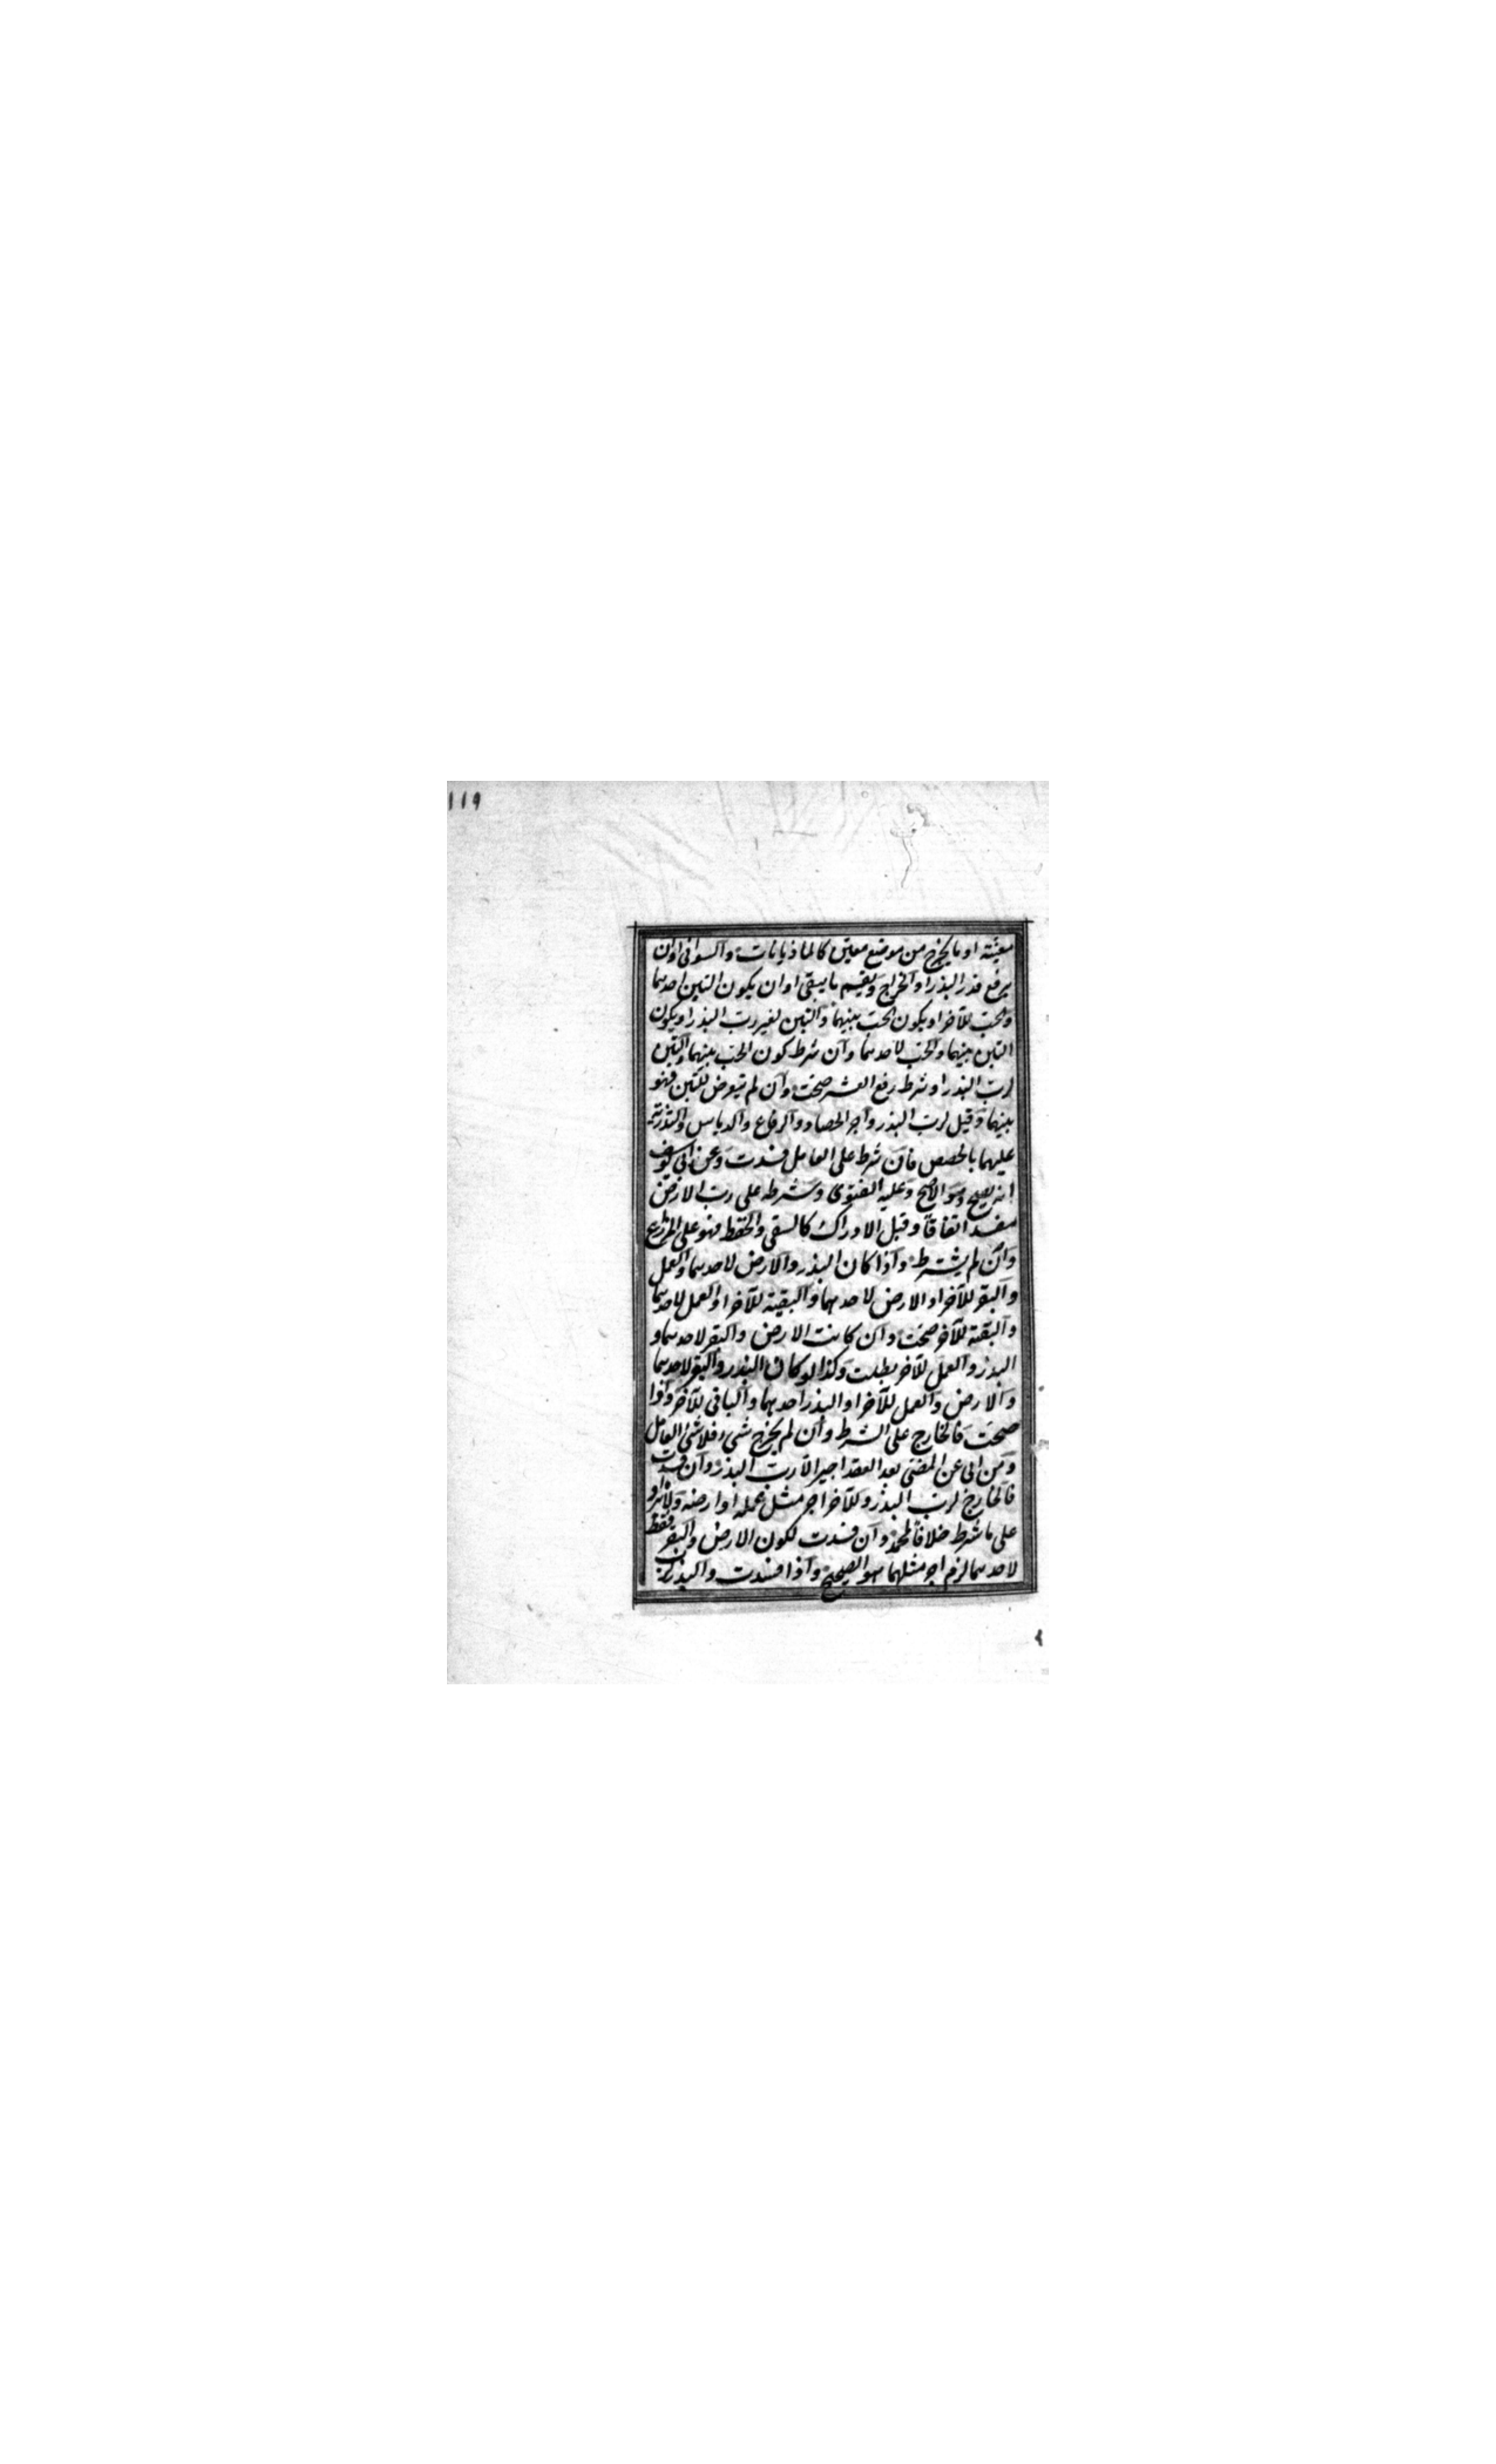 ١١٩
معينة او ما يخرج من موضع معين كالماذيانات والسواقى او ان
يرفع قدر البذر او الخراج ويقسم ما يبقى او ان يكون التبن لاحدهما
والحب للآخر او يكون الحب بينهما والتبن لغير رب البذر او يكون
التبن بينهما والحب لاحدهما وان شرط كون الحب بينهما والتبن
لرب البذر او شرط رفع العشر صحت وان لم يتعرض للتبن فهو
بينهما وقيل لرب البذر واجر الحصاد والرفاع والدياس والتذرية
عليهما بالحصص فان شرط على العامل فسدت وعن ابى يوسف
انه يصح وهو الاصح وعليه الفتوى وشرطه على رب الارض
مفسد اتفاقا وقبل الادراك كالسقى والحفظ فهو على المزارع
وان لم يشترط واذا كان البذر والارض لاحدهما والعمل
والبقر للآخر او الارض لاحدهما والبقية للآخر او العمل لاحدهما
والبقية للآخر صحت وان كانت الارض والبقر لاحدهما و
البذر والعمل للآخر بطلت وكذا لو كان البذر والبقر لاحدهما
والارض والعمل للآخر او البذر لاحدهما والباقى للآخر واذا
صحت فالخارج على الشرط وان لم يخرج شىء فلا شئ للعامل
ومن ابى عن المضى بعد العقد اجبر الا رب البذر وان فسدت
فالخارج لرب البذر وللآخر اجر مثل عمله او ارضه ولا يزاد
على ما شرط خلافا لمحمد وان فسدت لكون الارض والبقر فقط
لاحدهما لزم اجر مثلهما هو الصحيح واذا فسدت والبذر لرب